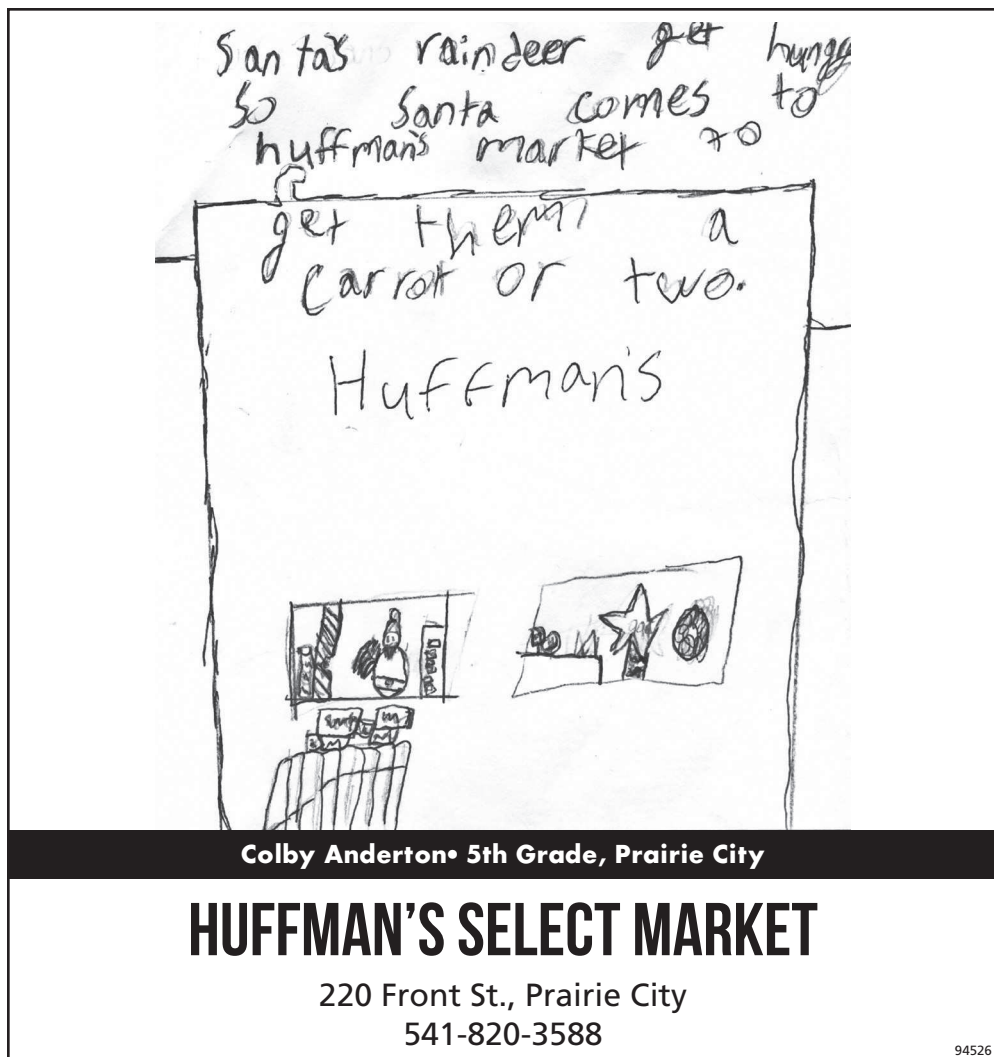 Santa's raindeer get hungy
So Santa comes to
huffman's market to
get them a
Carrot or two.
Huffman's
Colby Anderton• 5th Grade, Prairie City
HUFFMAN'S SELECT MARKET
220 Front St., Prairie City
541-820-3588
94526